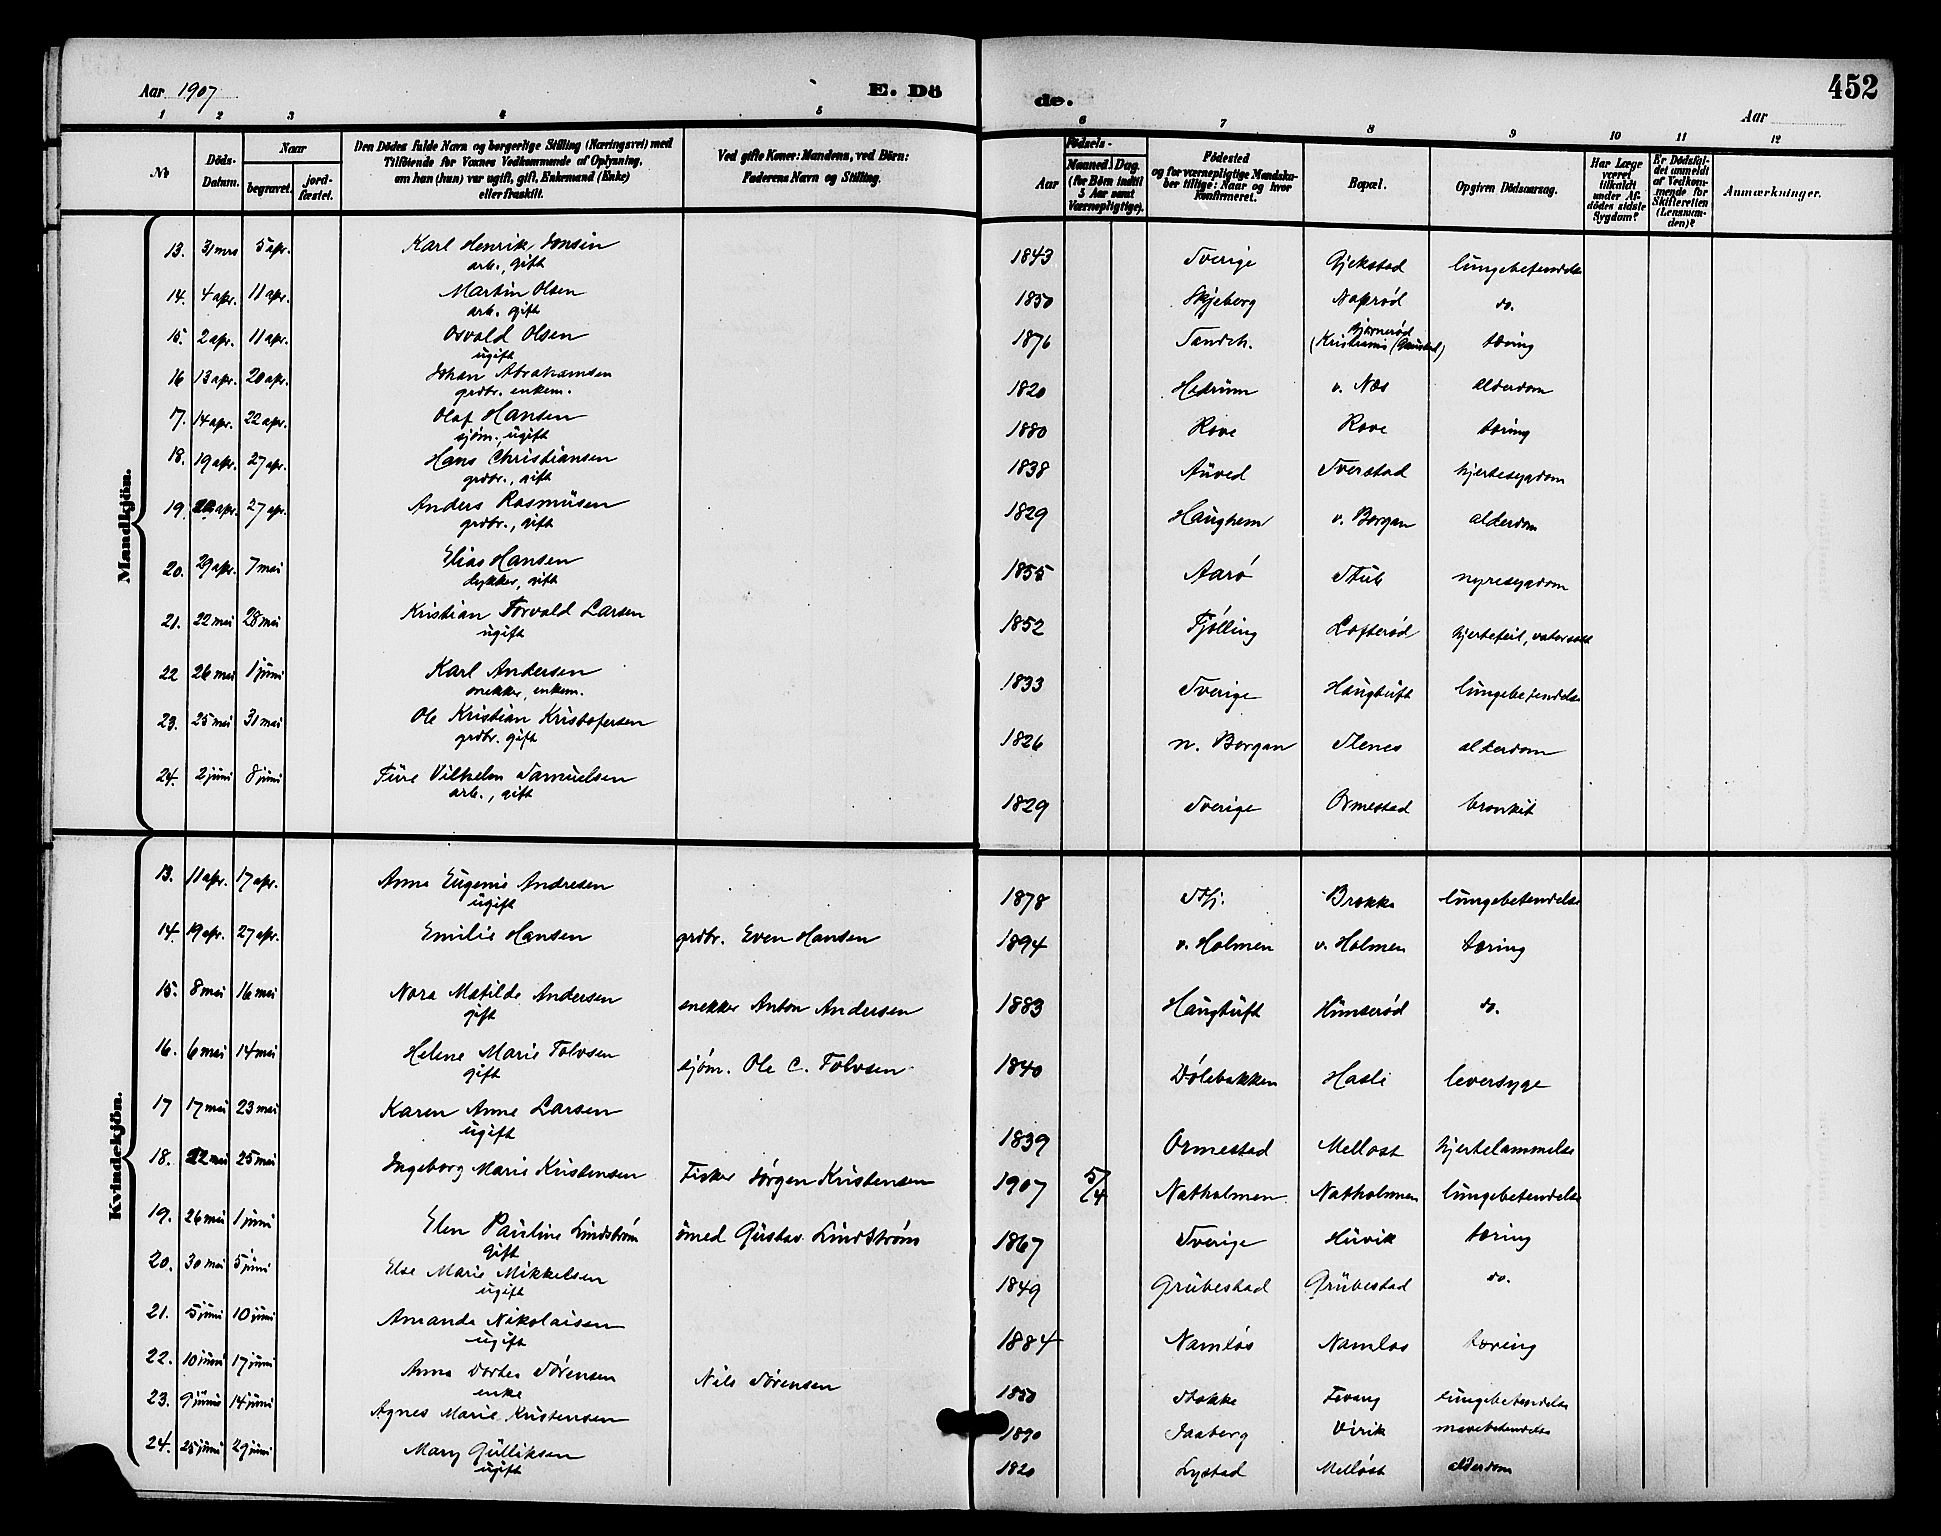 Aar 1907 E. Dö de. Aar 452
1 2 3 4 5 6 7 8 9 10 11 12
No
Döds-Datum.
Naar
begravet.
jord-fæstet.
Den Dödes fulde Navn og borgerlige Stilling (Næringsvei) med
Tilföiende for Voxnes Vedkommende af Oplysning,
om han (hun) var ugift, gift, Enkemand (Enke)
eller fraskilt.
Ved gifte Koner: Mandens, ved Börn:
Faderens Navn og Stilling.
Födsels-
Aar
Maaned. Dag.
(for Börn indtil
5 Aar samt
Værnepligtige).
Födested
og for værnepligtige Mandska-
ber tillige: Naar og hvor
konfirmeret.
Bopæl.
Opgiven Dödsaarsag.
Har Læge
været
tilkaldt
under Af-
dödes sidste
Sygdom?
Er Dödsfal-
det anmeldt
af Vedkom-
mende for
Skifteretten
(Lensman-
den)?
Anmærkninger.
Mandkjön.
13. 31 mrs 5 apr. Karl Henrik Jonsen 1843 Sverige Gjekstad lungebetendelse
arb., gift
14. 4 apr. 11 apr. Martin Olsen 1850 Skjeberg Naprød do.
arb. gift
15. 2 apr. 11 apr. Osvald Olsen 1876 Sandeh. Bjørnerød tæring
ugift (Kristiania
16 13 apr. 20 apr. Johan Abrahamsen 1820 Hedrum v. Næs alderdom
grdbr. enkem.
17. 14 apr. 22 apr. Olaf Hansen 1880 Rove Rove tæring
sjøm., ugift
18. 19 apr. 27 apr. Hans Christiansen 1838 Auved Sverstad hjertesygdom
grdbr., gift
19. 22 apr. 27 apr. Anders Rasmusen 1829 Haughem v. Borgan alderdom
grdbr., gift
20. 29 apr. 7 mai Elias Hansen 1855 Aarø Stub nyresygdom
dykker, gift
21. 22 mai 28 mai Kristian Torvald Larsen 1852 Tjølling Lofterød hjertefeil, vatersott
ugift
22 26 mai 1 juni Karl Andersen 1833 Sverige Haugtuft lungebetendelse
snekker, enkem.
23. 25 mai 31 mai Ole Kristian Kristofersen 1826 n. Borgan Stenes alderdom
grdbr. gift
24. 2 juni 8 juni Ture Vilhelm Samuelsen 1829 Sverige Ormestad bronkit
arb., gift
Kvindekjön.
13. 11 apr. 17 apr. Anna Eugenie Andresen 1878 Sthj. Brekke lungebetendelse
ugift
14. 19 apr. 27 apr. Emilie Hansen grdbr. Even Hansen 1894 v. Holmen v. Holmen tæring
15. 8 mai 16 mai Nora Matilde Andersen snekker Anton Andersen 1883 Haugtuft Hunserød do.
gift
16. 6 mai 14 mai Helene Marie Tolvsen sjøm. Ole C. Tolvsen 1840 Dølebakken Hasle leversyge
gift
17 17 mai 23 mai Karen Anne Larsen 1839 Ormestad Melløst hjertelammelse
ugift
18. 22 mai 25 mai Ingeborg Marie Kristensen Fisker Jørgen Kristensen 1907 5/4 Natholmen Natholmen lungebetendelse
19. 26 mai 1 juni Elen Pauline Lindstrøm smed Gustav Lindstrøm 1867 Sverige Huvik tæring
gift
20. 30 mai 5 juni Else Marie Mikkelsen 1849 Grubestad Grubestad do.
ugift
21. 5 juni 10 juni Amanda Nikolaisen 1884 Namløs Namløs tæring
ugift
22. 10 juni 17 juni Anna Dortea Sørensen Nils Sørensen 1850 Stokke Fevang lungebetendelse
enke
23. 9 juni 14 juni Agnes Marie Kristensen 1890 Saaberg Virik mavebetendelse
24. 25 juni 29 juni Mary Gulliksen 1820 Lystad Melløst alderdom
ugift